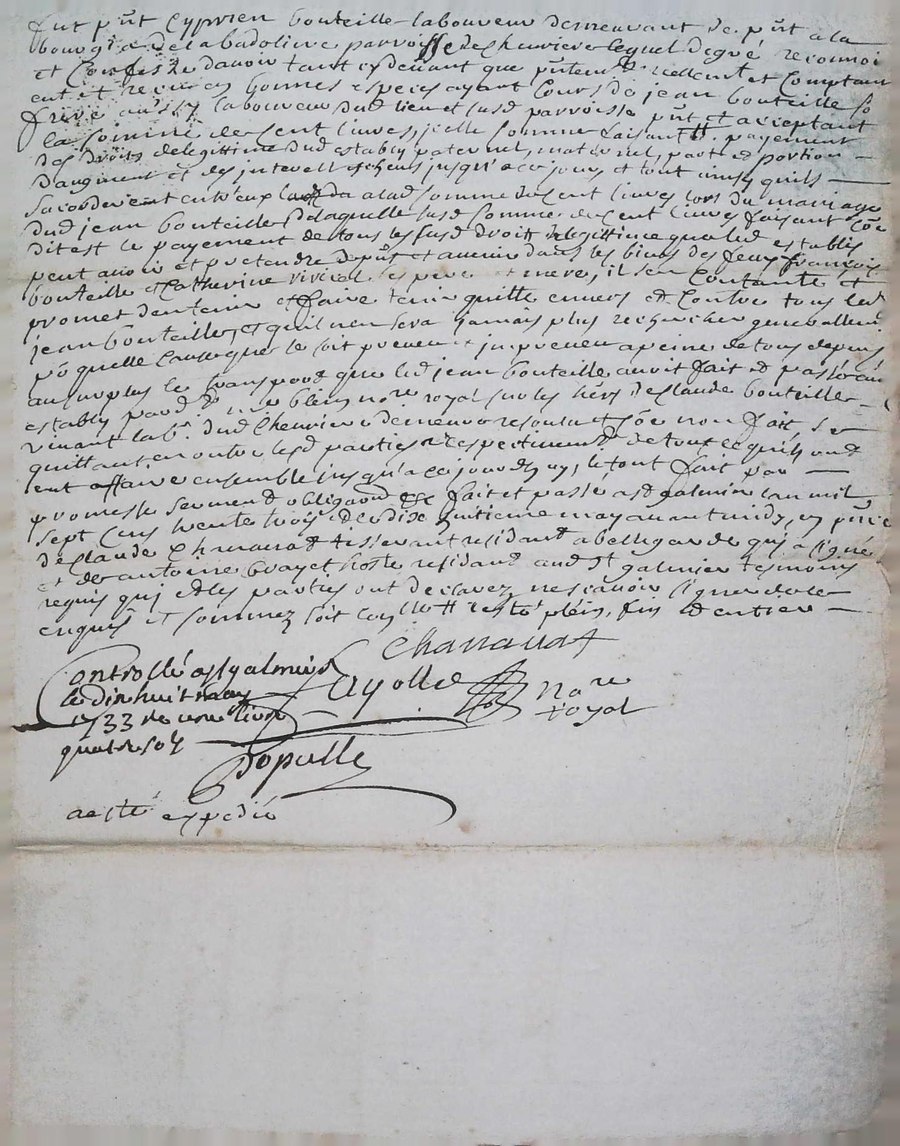 fut pnt Cyprien bouteille laboureur demeurant de pnt a la
bourgié de labadoline parroisse de chevriere lequel de gré reconnoi
et Confesse davoir tant cy devant que pntem reellement et Comptant
eut et receu en bonnes especes ayant Cours de jean bouteille so
frere aussy laboureur dud lieu et susd parroisse pnt et acceptant
la somme de cent livres, jcelle somme faisant payement
des droits de legittime dud estably paternel, maternel, part et portion
daugment et des interest escheus jusqu'a ce jour, et tout ainsy quils
accorderent entr'eux a lad somme de cent livres lors du mariage
dud jean bouteille, de laquelle susd somme de cent livres faisant Cõe
dit est le payement de tous les susd droitt de legittime que led estably
peut avoir et pretendre de pnt et avenir dans les biens des feux françois
bouteille et Catherine ses pere et mere, il sen Contante et
promet den tenir et faire tenir quitte envers et Contre tous led
jean bouteille, et quil nen sera jamais plus recherchér generallem
po quelle Cause que le soit preveue et jnpreveue a peine de tous depens
au surplus le transpord que led jean bouteille avoit fait et passé aud
estably pard no.re royal sur les hers de Claude bouteille
vivant lab.r dud Chevriere demeure resoulu et Cõe non fait se
quittant en outre lesd parties respectivement de tout ce quils ont
eut affaire ensemble jusqu'a ce jourdhuy, le tout fait par
promesse serment obligaõns &c fait et passé a st galmier lan mil
sept cens trente trois et le dix huitieme may avant midy, en pnce
de Claude Charavat residant a bellegarde qui a signé
et de antoine brayet hoste residant aud st galmier tesmoins
requis qui et les parties ont declarez ne scavoir signer de ce
enquis et sommez soit plein, fin dentier
Charravat
Controllé a st galmier
le dix huit may
1733 de une livre
quatre sols
fayolle no.re
royal
populle
a esté expedié